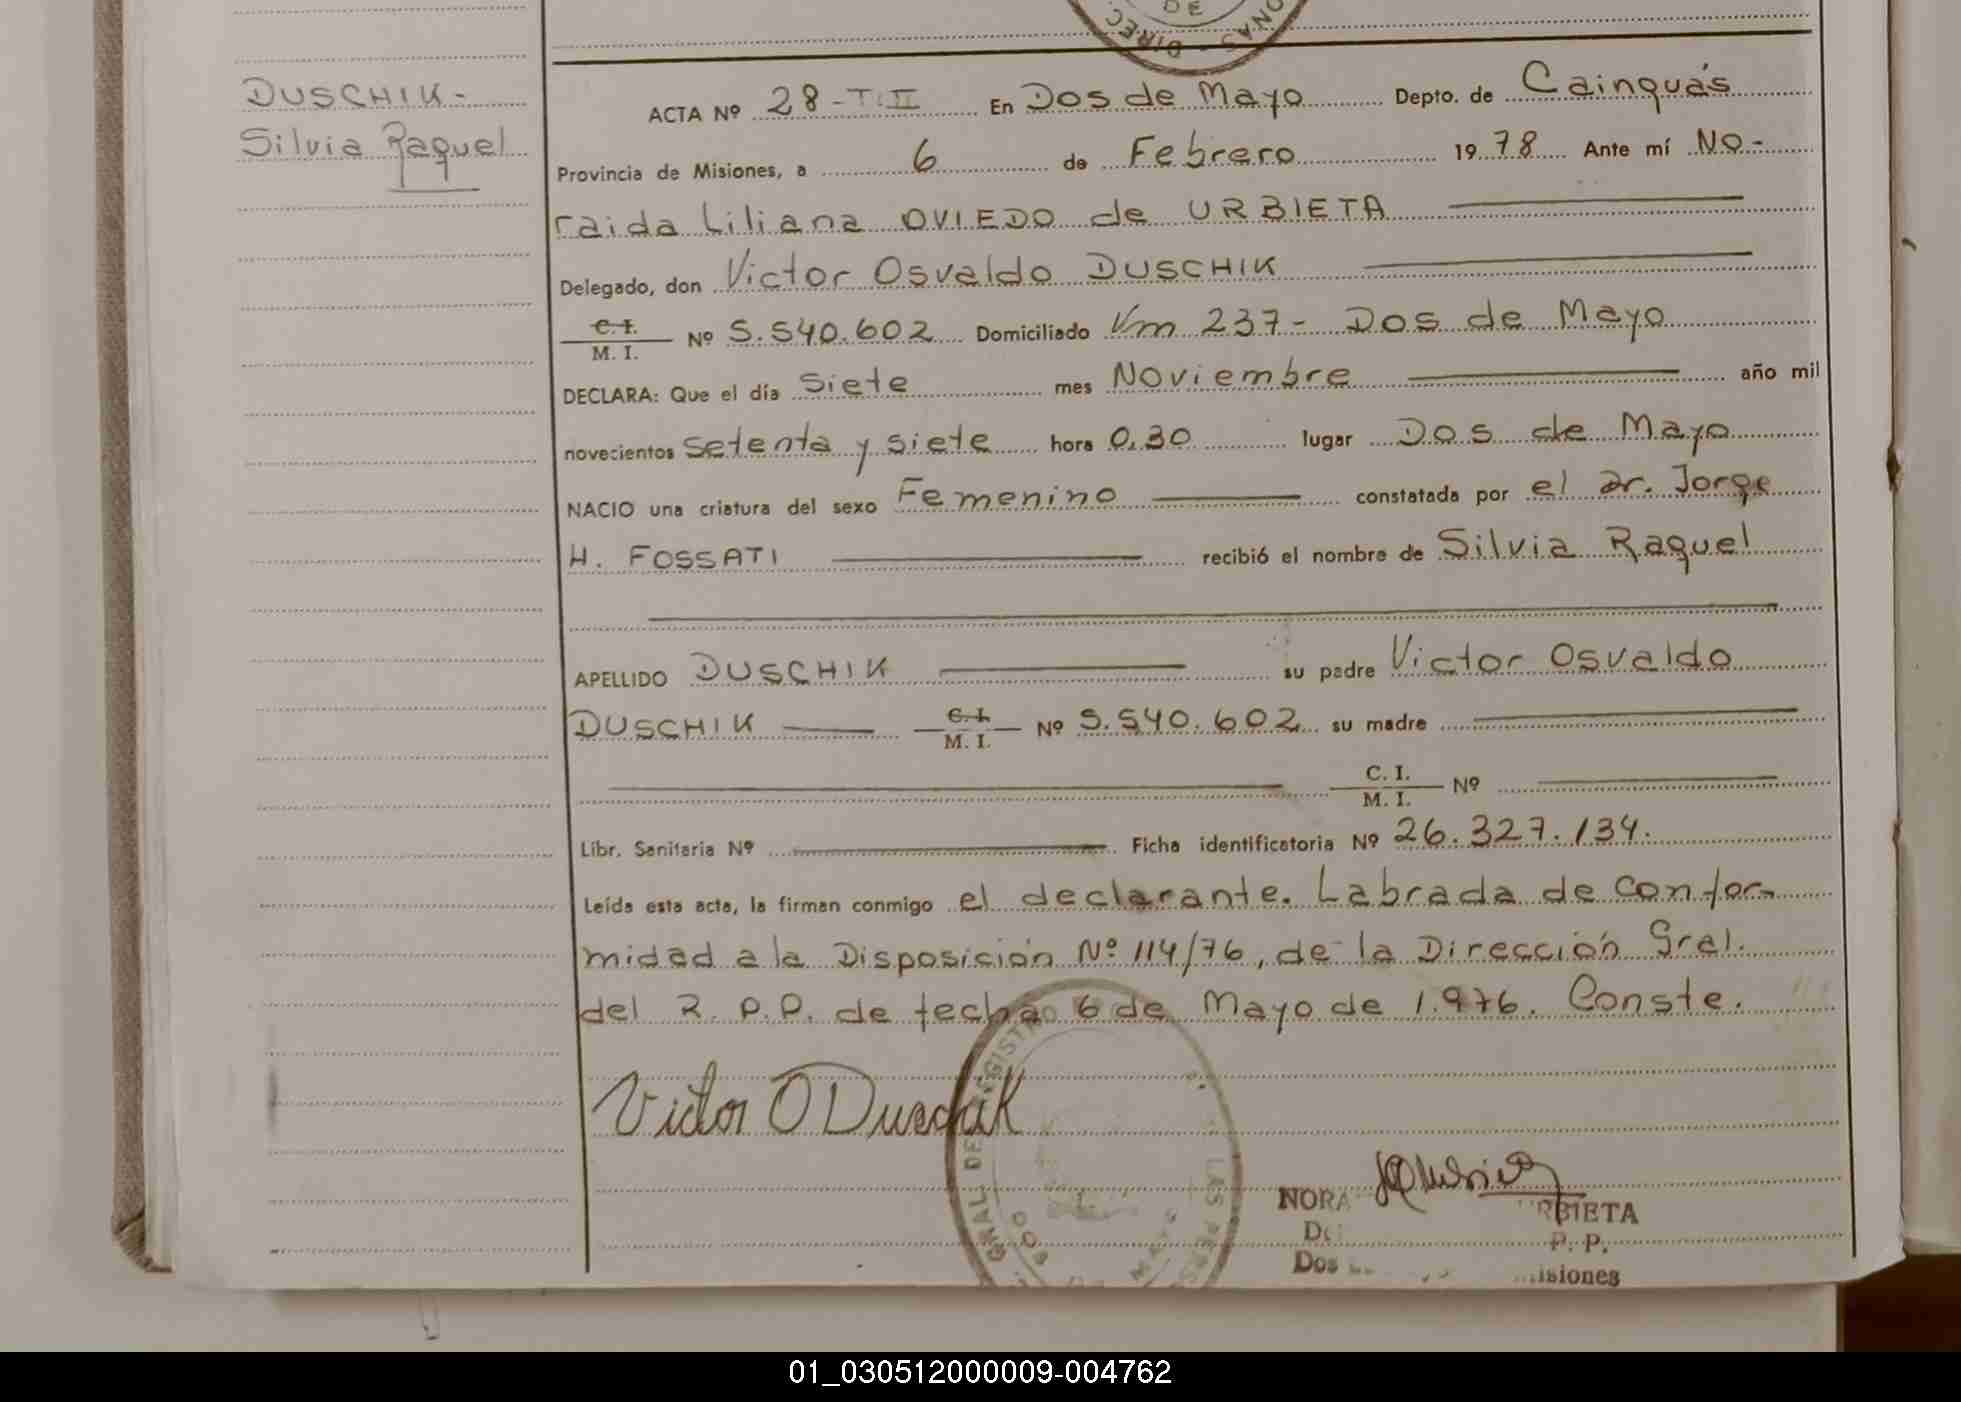 DE
DIREC.
ONAS
DUSCHIK-
Silvia Raquel
ACTA Nº 28-T:II En Dos de Mayo Depto. de Cainguás
Provincia de Misiones, a 6 de Febrero 1978 Ante mí No-
raida Liliana OVIEDO de URBIETA
Delegado, don Victor Osvaldo DUSCHIK
C. I.
M. I. Nº 5.540.602 Domiciliado Km 237- Dos de Mayo
DECLARA: Que el día siete mes Noviembre año mil
novecientos setenta y siete hora 0,30 lugar Dos de Mayo
NACIO una criatura del sexo Femenino constatada por el Dr. Jorge
H. FOSSATI recibió el nombre de Silvia Raquel
APELLIDO DUSCHIK su padre Victor Osvaldo
DUSCHIK C. I. M. I. Nº 5.540.602 su madre
C. I. M. I. Nº
Libr. Sanitaria Nº Ficha identificatoria Nº 26.327.134.
Leída esta acta, la firman conmigo el declarante. Labrada de confor-
midad a la Disposición Nº 114/76, de la Dirección Gral.
del R. P.P. de fecha 6 de Mayo de 1.976. Conste.
Victor O Duschik
NORA RBIETA
P. P.
Dos isiones
01_030512000009-004762